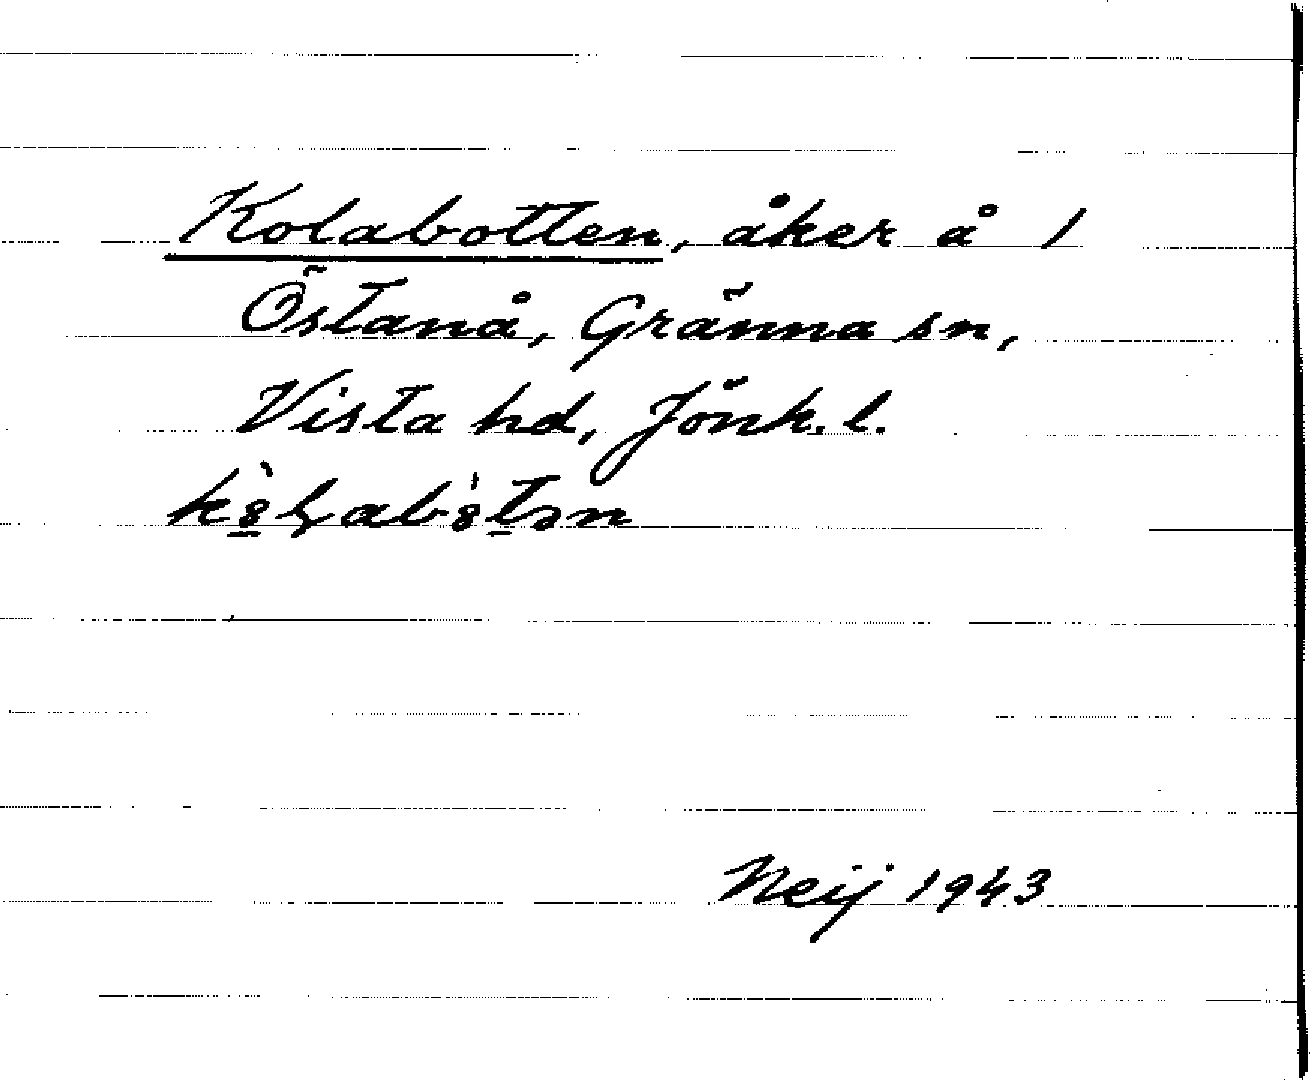 Kolabotten, åker å 1
Östanå, Gränna sn,
Vista hd, Jönk. l.
Neij 1943